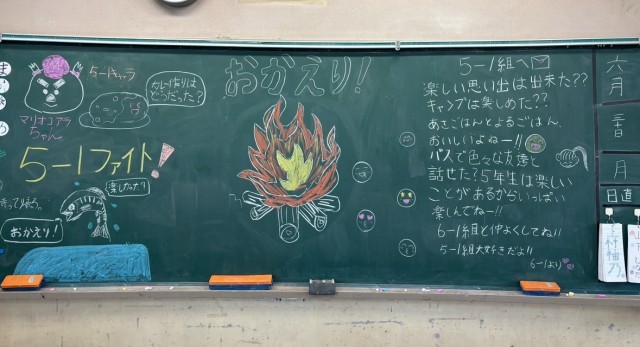 5-1キャラ
カレー作りは
どうだった？
マリオコアラ
ちゃん
5-1ファイト！
楽しかった？
おかえり！
おかえり！
5-1組へ
楽しい思い出は出来た??
キャンプは楽しめた??
あさごはんとよるごはん、
おいしいよねー!!
バスで色々な友達と
話せた？5年生は楽しい
ことがあるからいっぱい
楽しんでねー!!
6-1組と仲よくしてね!!
5-1組大好きだよ!!
6-1より
六
月
三
日
月
日直